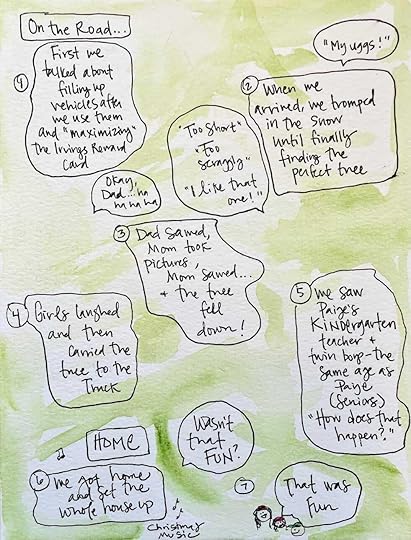 On the Road...
1
First we
talked about
filling up
vehicles after
we use them
and "maximizing"
the Irvings Reward
Card
Okay,
Dad...ha
ha ha ha
"My uggs!"
2
When we
arrived, we tromped
in the snow
until finally
finding the
perfect tree
"Too short"
"Too
scraggly"
"I like that
one!"
3
Dad sawed,
Mom took
pictures,
Mom sawed...
+ the tree
fell
down!
4
Girls laughed
and then
carried the
tree to the
Truck
5
we saw
Paige's
Kindergarten
teacher +
twin boys-the
same age as
Paige
(seniors)
"How does that
happen?"
HOME
6
we got home
and set the
whole house up
Christmas
music
Wasn't
that
FUN?
7
That was
Fun